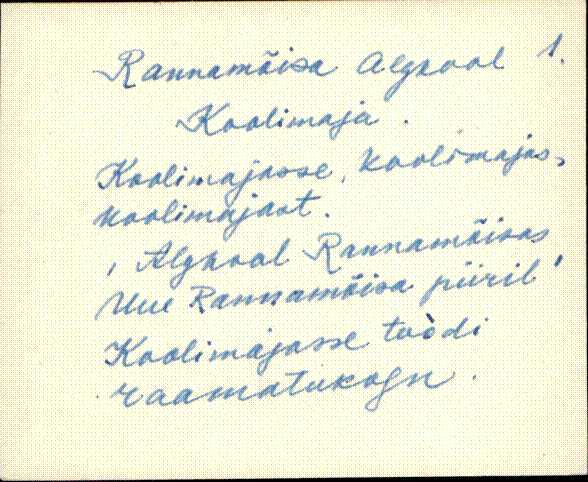 Rannamõisa Algkool 1.
Koolimaja.
Koolimajasse, koolimajas,
koolimajast.
, Algkool Rannamõisas
Uue Rannamõisa piiril'
Koolimajasse toodi
raamatukogu.